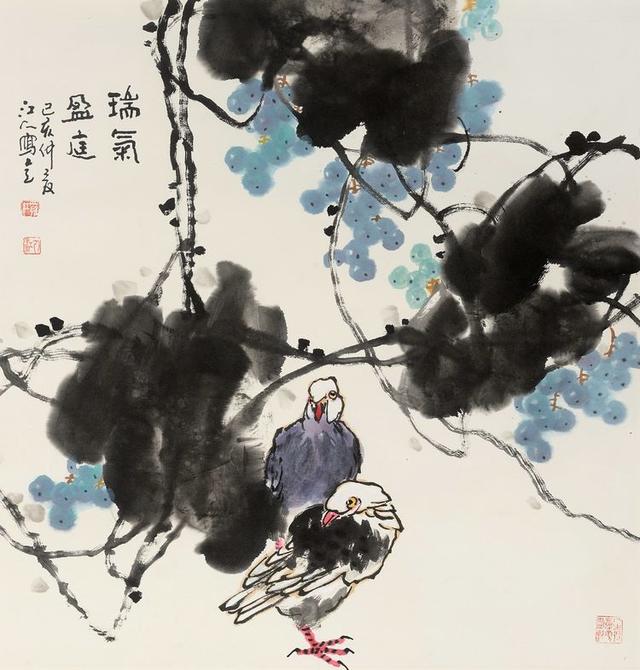 瑞氣
盈庭
己亥仲夏
江人寫意